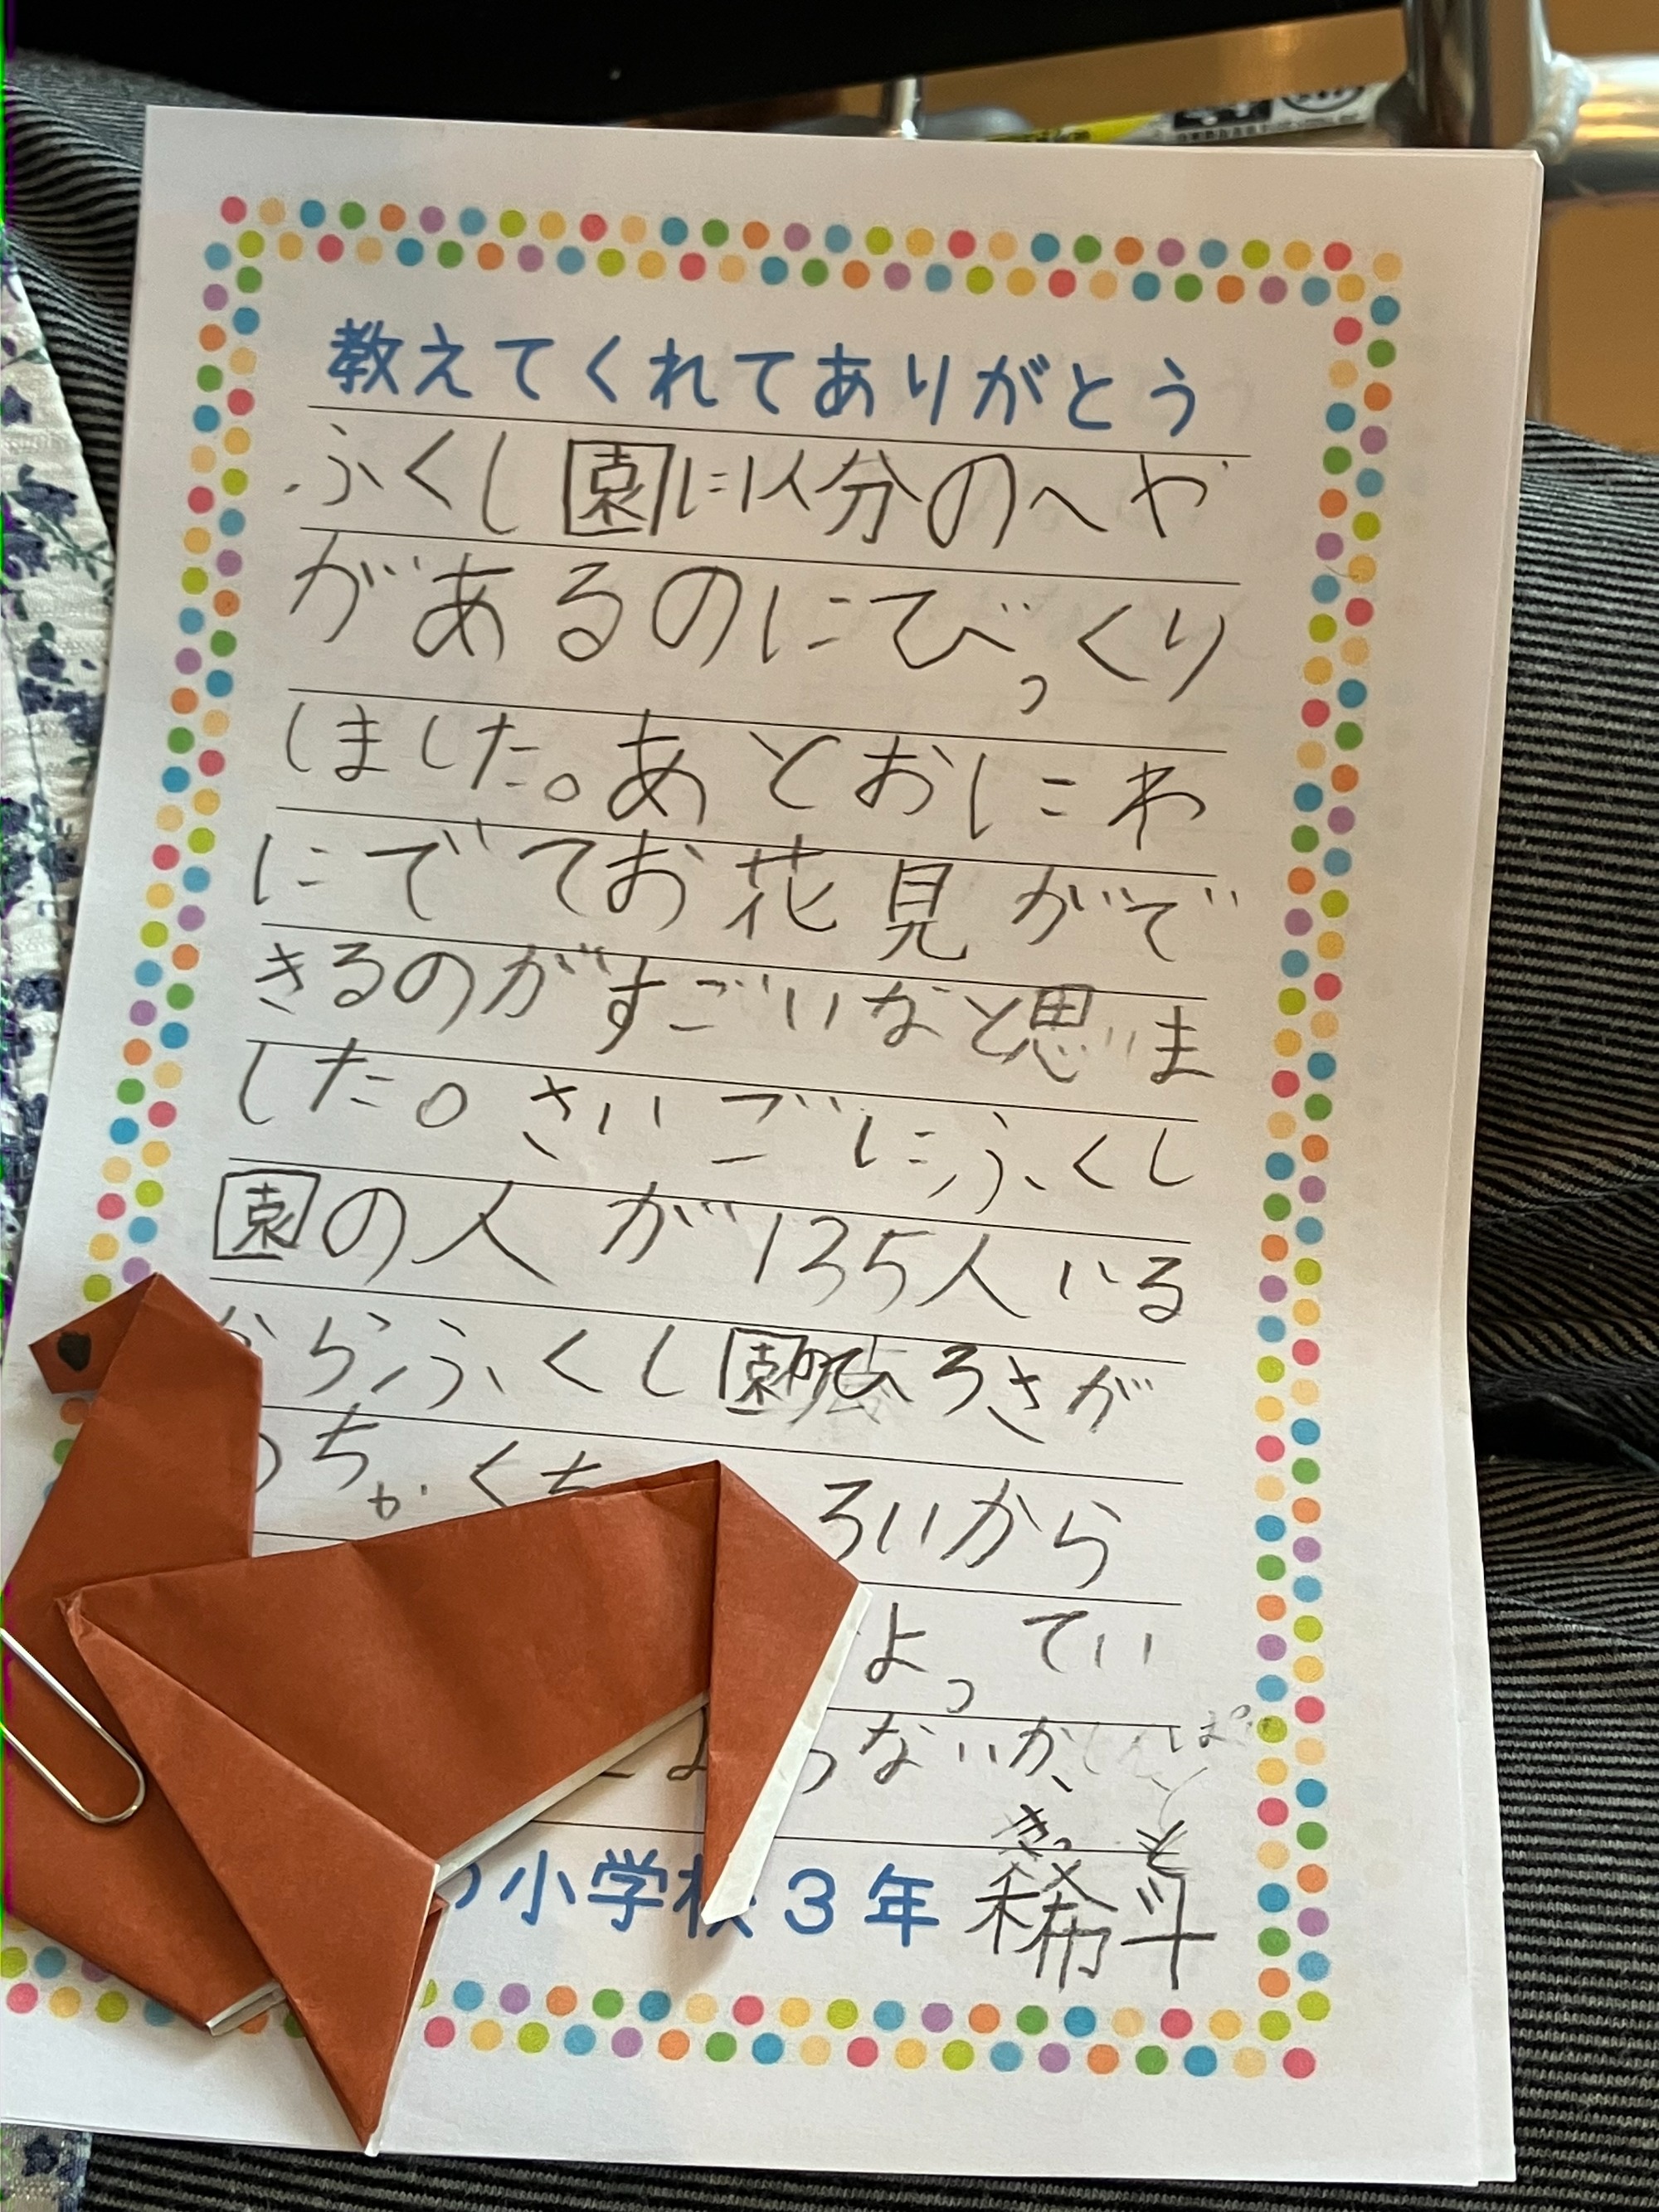 教えてくれてありがとう
ふくし園に以分のへや
があるのにびっくり
しました。あとおにわ
にでてお花見がで
きるのがすごいなと思いま
した。さいごにふくし
園の人が135人いる
からふくし園のひろさが
ちゃくち ろいから
よってい
ないか、
小学校3年 稀斗
きっ と